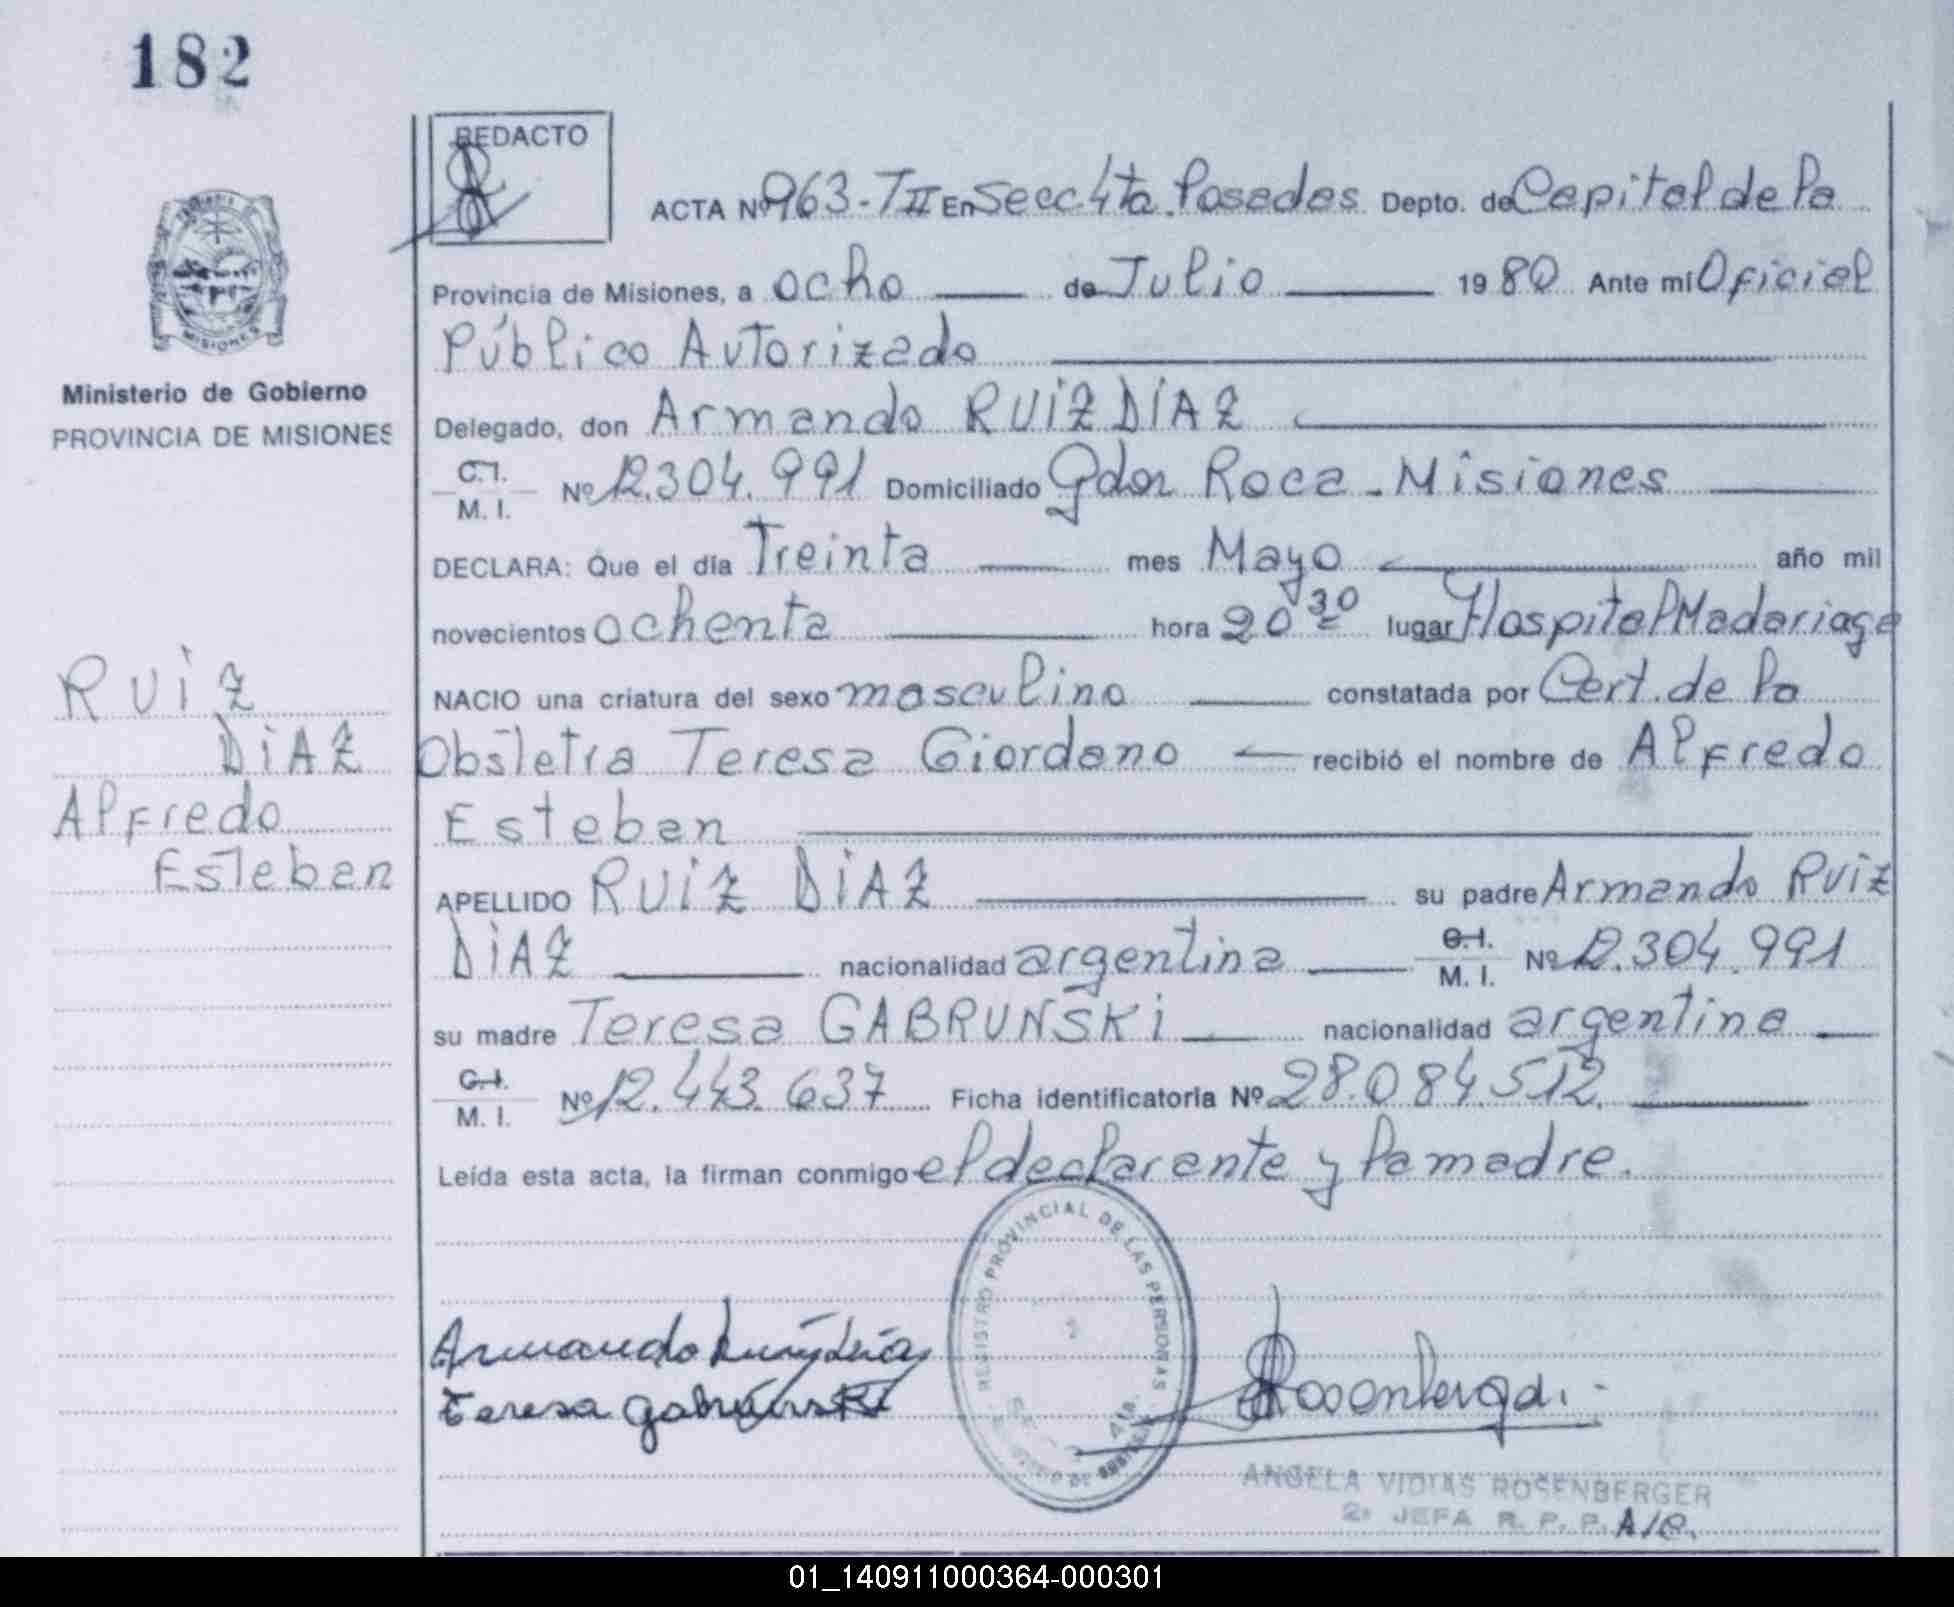 182
REDACTO
ACTA Nº 963-TII En Secc 4ta. Posadas Depto. de Capital de la
Provincia de Misiones, a ocho de Julio 1980 Ante mi Oficial
Público Autorizado
Delegado, don Armando RUiZ DiAZ
C.I.
M. I. Nº 12.304.991 Domiciliado Gdor Roca - Misiones
DECLARA: Que el día Treinta mes Mayo año mil
novecientos ochenta hora 20 30 lugar Hospital Madariaga
NACIO una criatura del sexo masculino constatada por Cert. de la
Obstetra Teresa Giordano recibió el nombre de Alfredo
Esteban
APELLIDO RUiZ DiAZ su padre Armando Ruiz
DiAZ nacionalidad argentina C.I. M. I. Nº 12.304.991
su madre Teresa GABRUNSKi nacionalidad argentina
C.I.
M. I. Nº 12.443.637 Ficha identificatoria Nº 28.084.512
Leída esta acta, la firman conmigo el declarante y la madre.
MISIONES
Ministerio de Gobierno
PROVINCIA DE MISIONES
RUiZ
DiAZ
Alfredo
Esteban
REGISTRO PROVINCIAL DE LAS PERSONAS
4ta.
Armando Ruiz Diaz
Teresa Gabrunski
ANGELA VIDIAS ROSENBERGER
2º JEFA R. P. P. A/C.
01_140911000364-000301